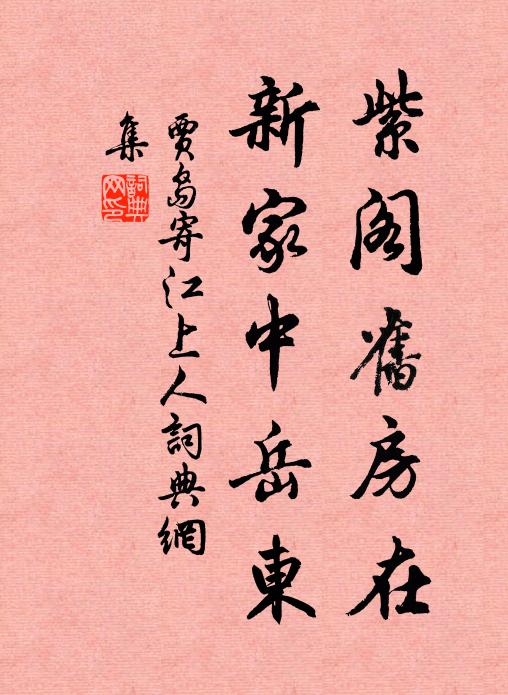 紫阁舊房在
新家中岳東
賈島寄江上人詞典網
集
詞典
网印